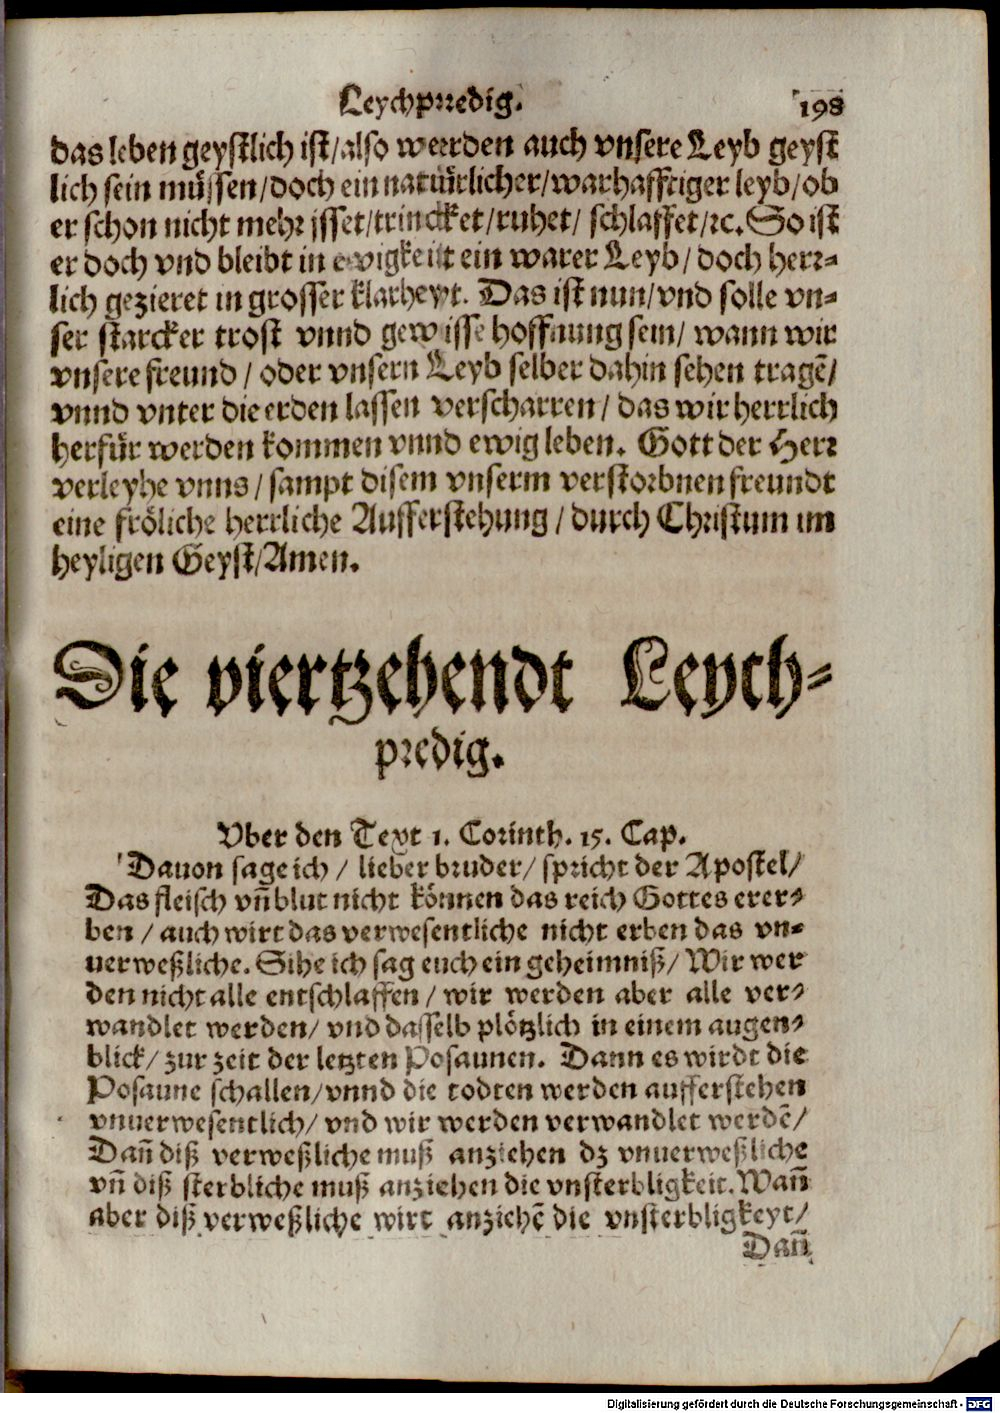 Leychpredig. 198
das leben geystlich ist/also werden auch vnsere Leyb geyst
lich sein müssen/doch ein natürlicher/warhafftiger leyb/ob
er schon nicht mehr isset/trincket/ruhet/ schlaffet/ꝛc. So ist
er doch vnd bleibt in ewigkeitt ein warer Leyb/ doch herr-
lich gezieret in grosser klarheyt. Das ist nun/vnd solle vn-
ser starcker trost vnnd gewisse hoffnung sein/ wann wir
vnsere freund / oder vnsern Leyb selber dahin sehen tragē/
vnnd vnter die erden lassen verscharren / das wir herrlich
herfür werden kommen vnnd ewig leben. Gott der Herr
verleyhe vnns / sampt disem vnserm verstorbnen freundt
eine fröliche herrliche Aufferstehung / durch Christum im
heyligen Geyst/Amen.
Die viertzehendt Leych-
predig.
Vber den Text 1. Corinth. 15. Cap.
Dauon sage ich / lieber bruder/ spricht der Apostel/
Das fleisch vn̄ blut nicht können das reich Gottes erer-
ben / auch wirt das verwesentliche nicht erben das vn-
uerweßliche. Sihe ich sag euch ein geheimniß/ Wir wer
den nicht alle entschlaffen / wir werden aber alle ver-
wandlet werden/ vnd dasselb plötzlich in einem augen-
blick/ zur zeit der letzten Posaunen. Dann es wirdt die
Posaune schallen/vnnd die todten werden aufferstehen
vnuerwesentlich/ vnd wir werden verwandlet werdē/
Dan̄ diß verweßliche muß anziehen dz vnuerweßliche
vn̄ diß sterbliche muß anziehen die vnsterbligkeit. Wan̄
aber diß verweßliche wirt anziehē die vnsterbligkeyt/
Dan̄
Digitalisierung gefördert durch die Deutsche Forschungsgemeinschaft - DFG